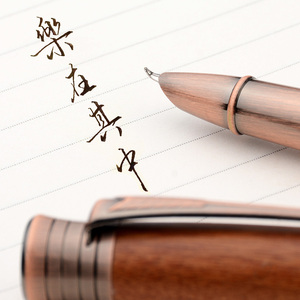 樂在其中